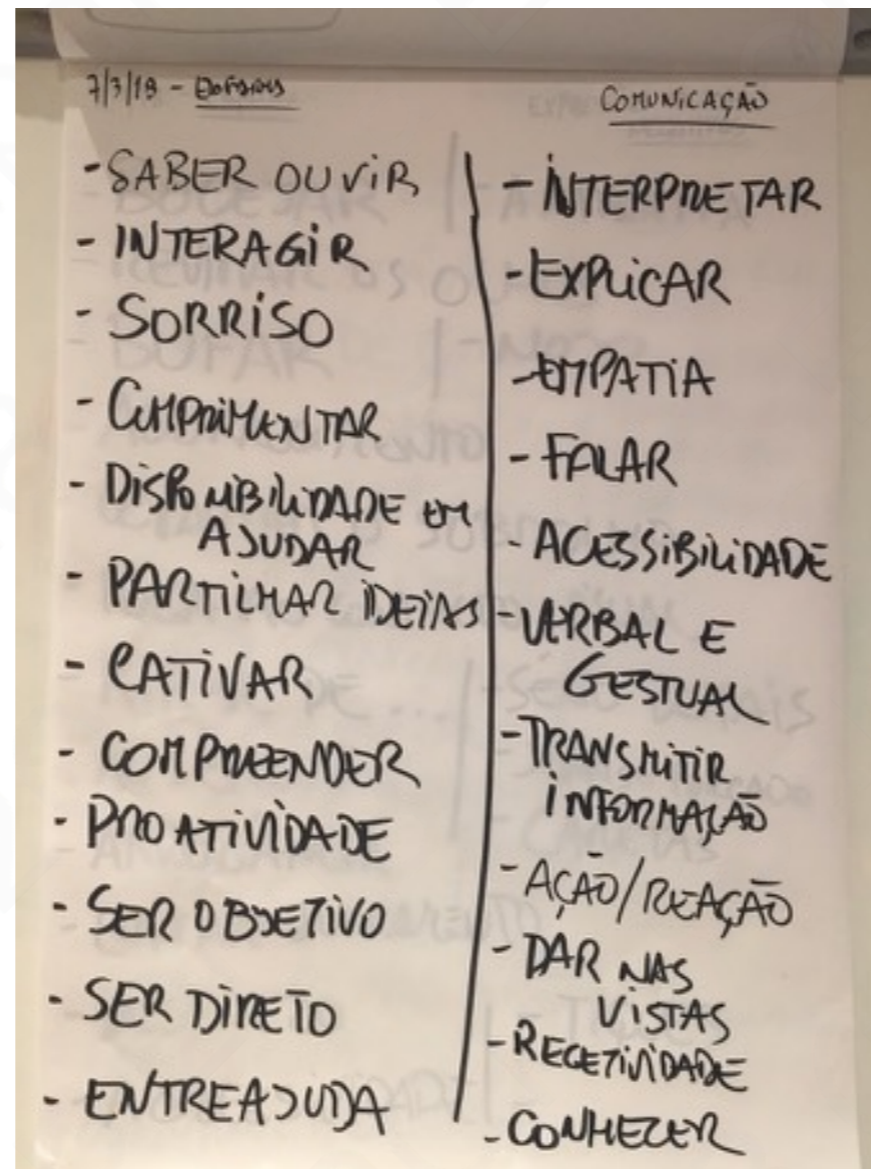 7/3/18 -
COMUNICAÇÃO
- SABER OUVIR
- INTERAGIR
- SORRISO
- CUMPRIMENTAR
- DISPONIBILIDADE EM
AJUDAR
- PARTILHAR IDEIAS
- CATIVAR
- COMPREENDER
- PROATIVIDADE
- SER OBJETIVO
- SER DIRETO
- ENTREAJUDA
- INTERPRETAR
- EXPLICAR
- EMPATIA
- FALAR
- ACESSIBILIDADE
- VERBAL E
GESTUAL
- TRANSMITIR
INFORMAÇÃO
- AÇÃO/REAÇÃO
- DAR NAS
VISTAS
- RECETIVIDADE
- CONHECER